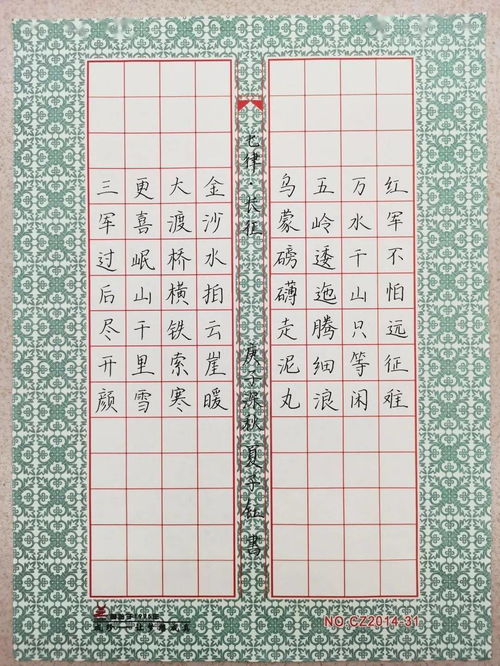 红军不怕远征难
万水千山只等闲
五岭逶迤腾细浪
乌蒙磅礴走泥丸
七律·长征
庚子深秋 夏 钰书
金沙水拍云崖暖
大渡桥横铁索寒
更喜岷山千里雪
三军过后尽开颜
NO:CZ2014-31